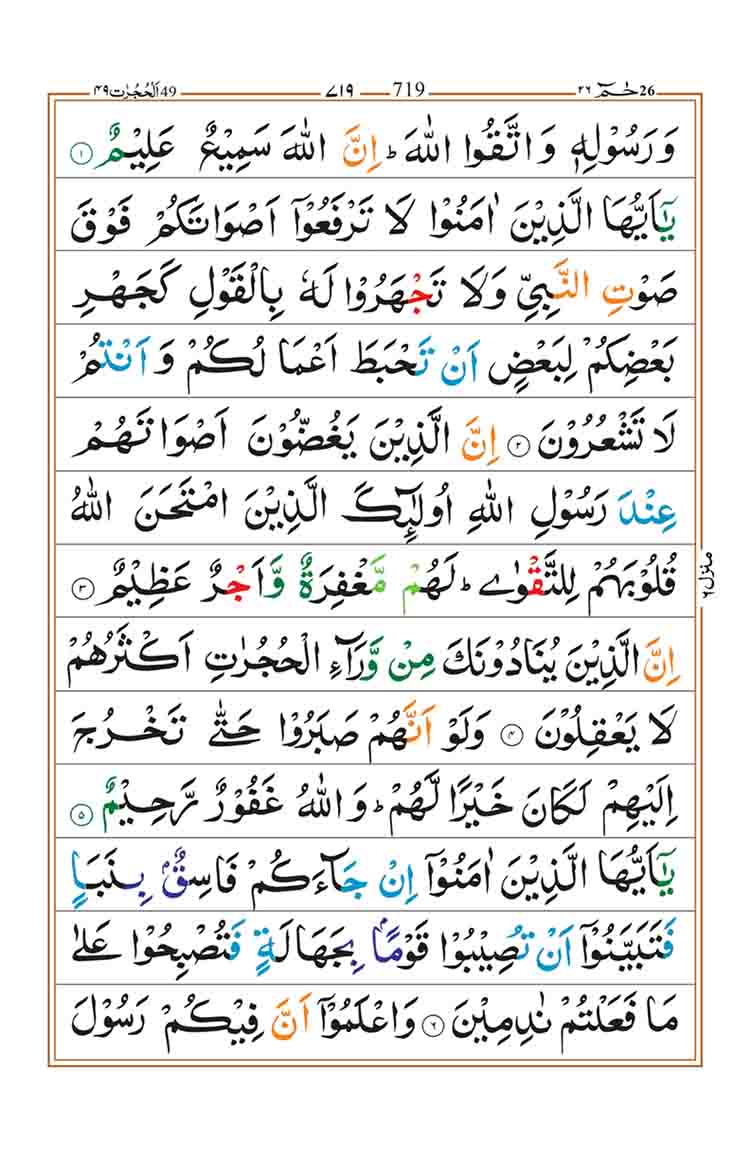 اَلْحُجُرٰت ۴۹ 49 ۷۱۹ 719 حٰمٓ ۲۶ 26
وَرَسُوْلِهٖ وَاتَّقُوا اللّٰهَ ؕ اِنَّ اللّٰهَ سَمِيْعٌ عَلِيْمٌ ۝۱
يٰۤاَيُّهَا الَّذِيْنَ اٰمَنُوْا لَا تَرْفَعُوْۤا اَصْوَاتَكُمْ فَوْقَ
صَوْتِ النَّبِيِّ وَلَا تَجْهَرُوْا لَهٗ بِالْقَوْلِ كَجَهْرِ
بَعْضِكُمْ لِبَعْضٍ اَنْ تَحْبَطَ اَعْمَالُكُمْ وَاَنْتُمْ
لَا تَشْعُرُوْنَ ۝۲ اِنَّ الَّذِيْنَ يَغُضُّوْنَ اَصْوَاتَهُمْ
عِنْدَ رَسُوْلِ اللّٰهِ اُولٰٓئِكَ الَّذِيْنَ امْتَحَنَ اللّٰهُ
قُلُوْبَهُمْ لِلتَّقْوٰى ؕ لَهُمْ مَّغْفِرَةٌ وَّاَجْرٌ عَظِيْمٌ ۝۳
اِنَّ الَّذِيْنَ يُنَادُوْنَكَ مِنْ وَّرَآءِ الْحُجُرٰتِ اَكْثَرُهُمْ
لَا يَعْقِلُوْنَ ۝۴ وَلَوْ اَنَّهُمْ صَبَرُوْا حَتّٰى تَخْرُجَ
اِلَيْهِمْ لَكَانَ خَيْرًا لَّهُمْ ؕ وَاللّٰهُ غَفُوْرٌ رَّحِيْمٌ ۝۵
يٰۤاَيُّهَا الَّذِيْنَ اٰمَنُوْۤا اِنْ جَآءَكُمْ فَاسِقٌۢ بِنَبَاٍ
فَتَبَيَّنُوْۤا اَنْ تُصِيْبُوْا قَوْمًاۢ بِجَهَالَةٍ فَتُصْبِحُوْا عَلٰى
مَا فَعَلْتُمْ نٰدِمِيْنَ ۝۶ وَاعْلَمُوْۤا اَنَّ فِيْكُمْ رَسُوْلَ
منزل ۶